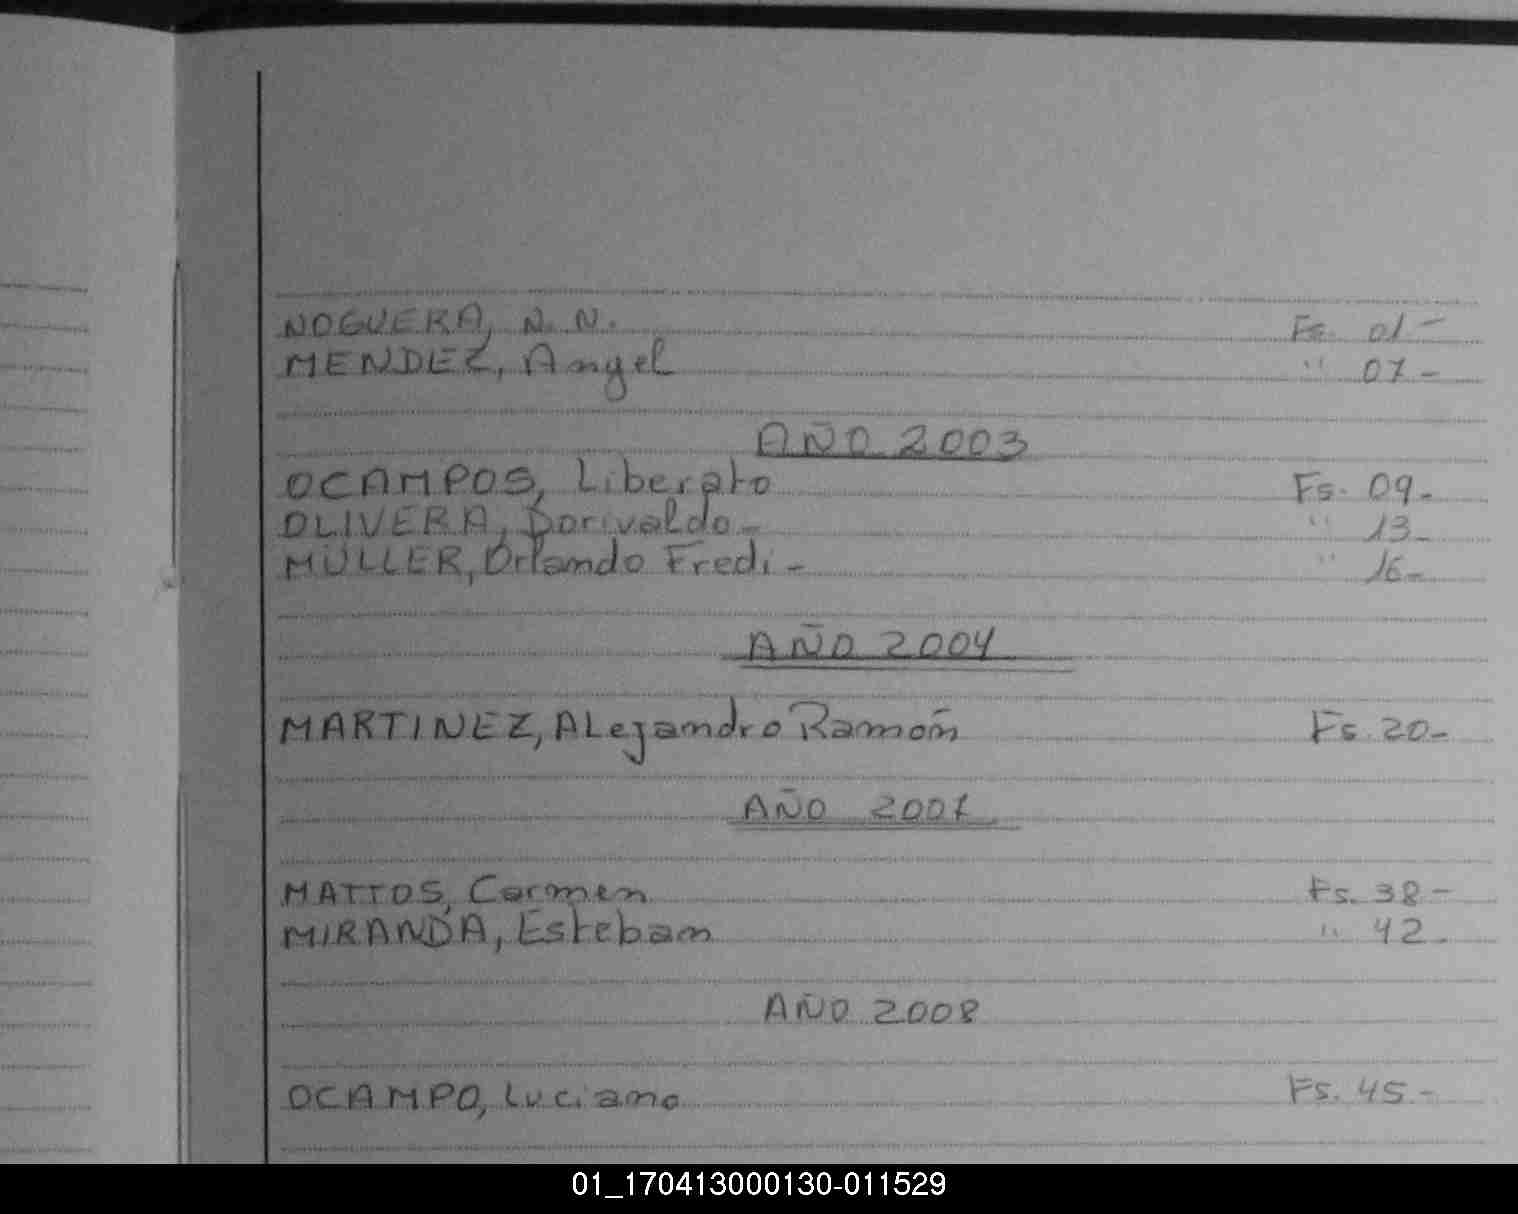 NOGUERA, N. N. Fs. 01-
MENDEZ, Angel " 07-
AÑO 2003
OCAMPOS, Liberato Fs. 09-
OLIVERA, Dorivaldo- " 13-
MÜLLER, Orlando Fredi- " 16-
AÑO 2004
MARTINEZ, ALejandro Ramón Fs. 20-
AÑO 2007
MATTOS, Carmen Fs. 38-
MIRANDA, Esteban " 42-
AÑO 2008
OCAMPO, Luciano Fs. 45.-
01_170413000130-011529